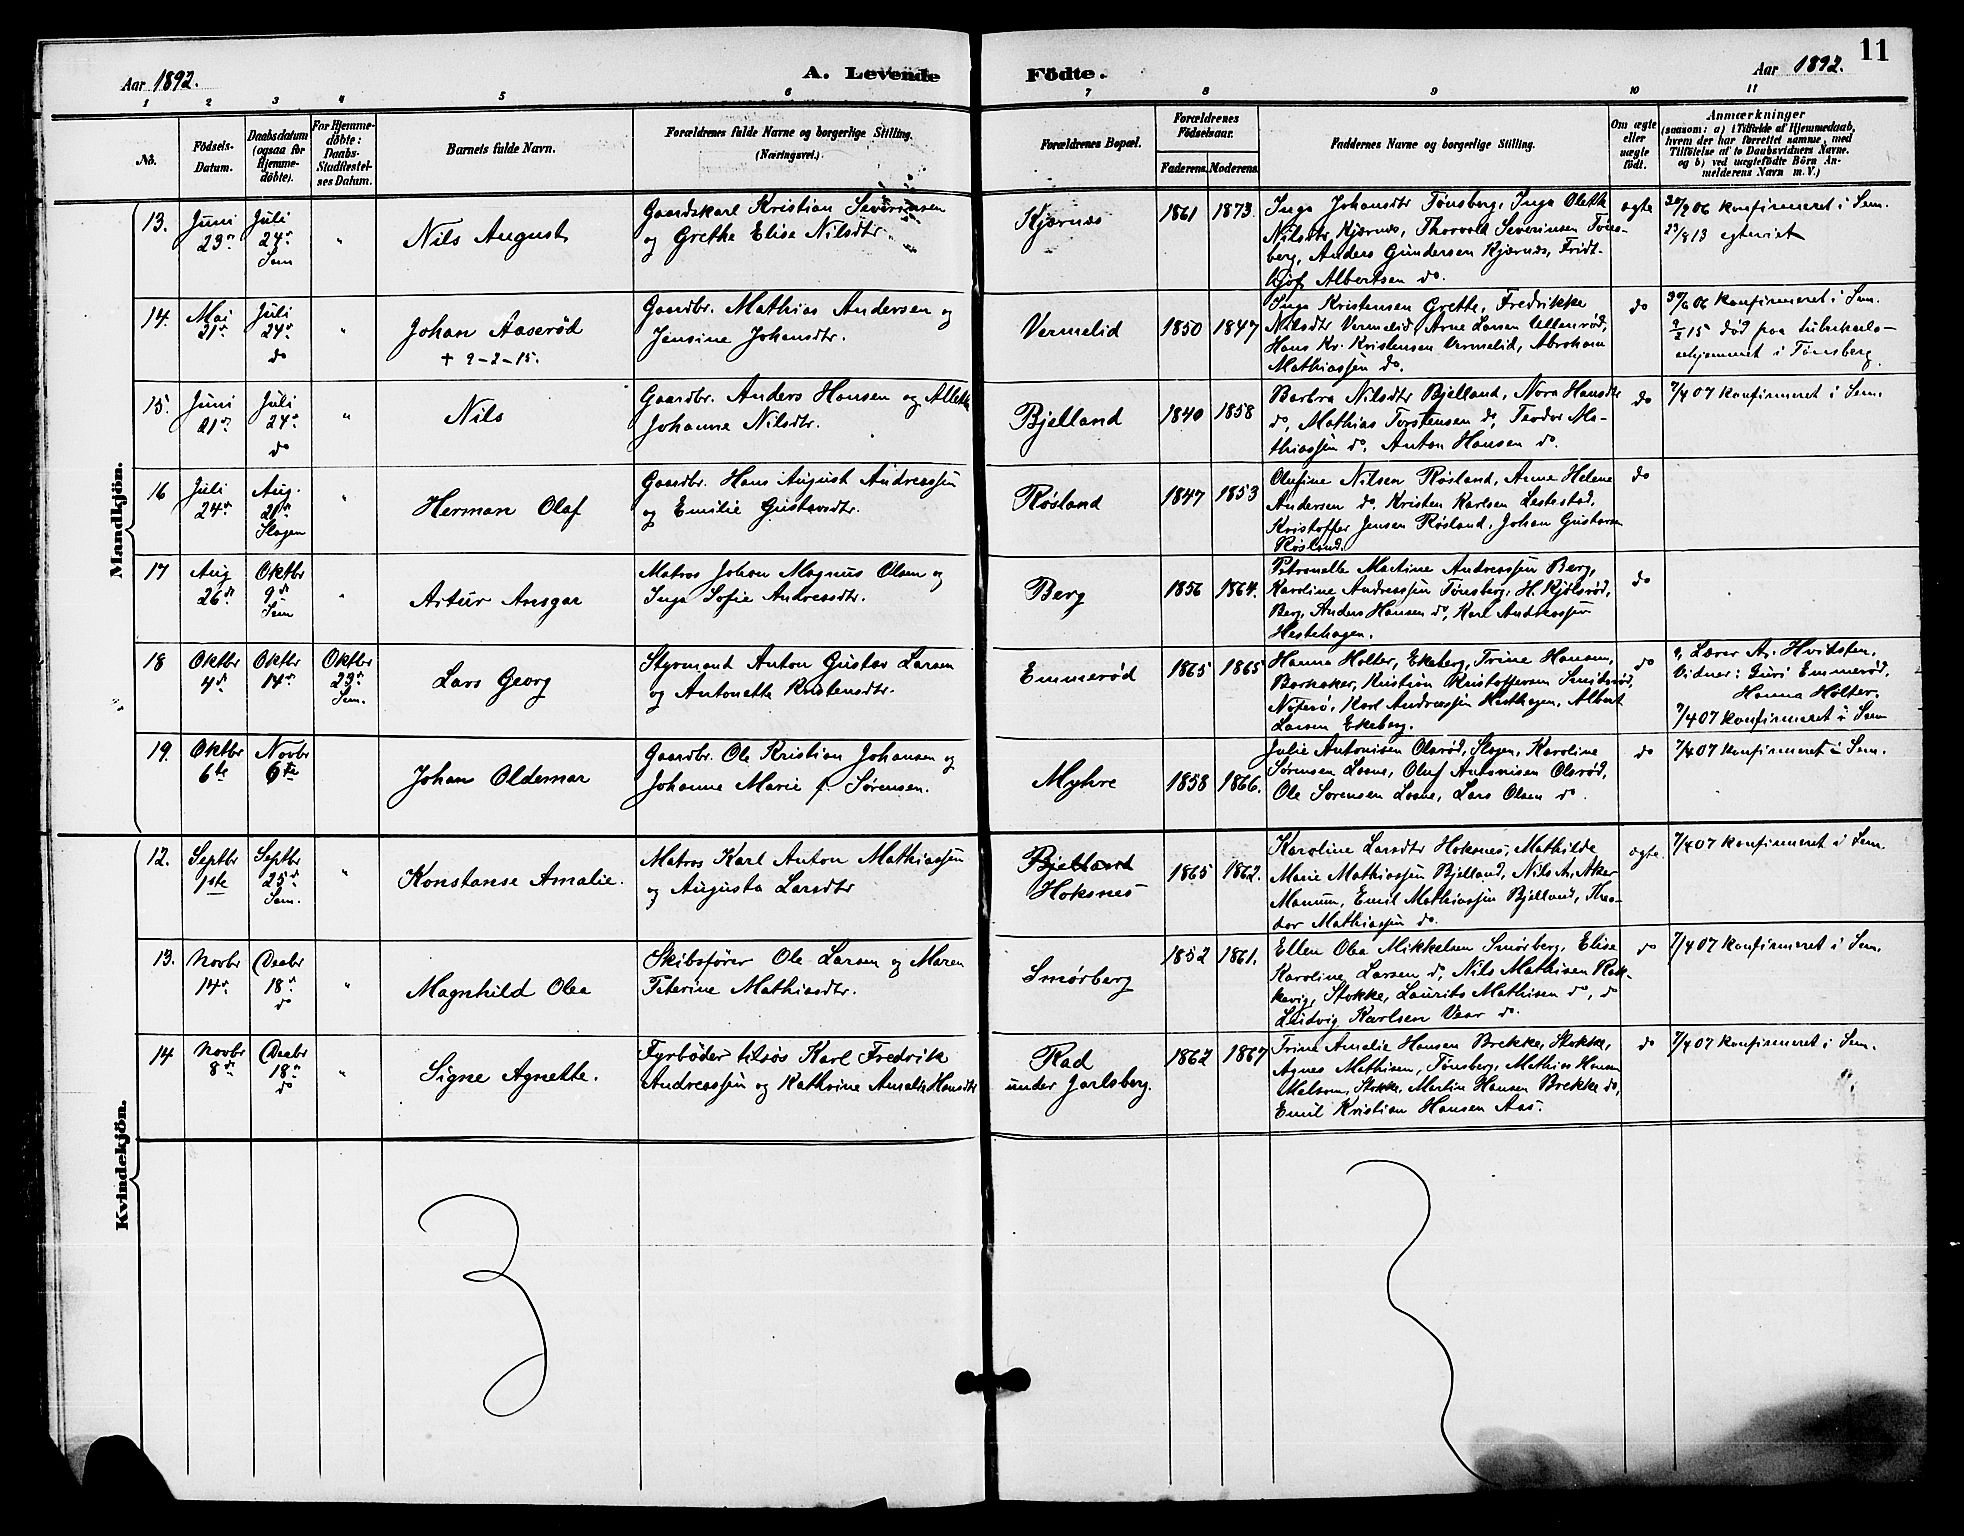 11
Aar 1892.
A. Levende Födte.
Aar 1892.
1 2 3 4 5 6 7 8 9 10 11
No.
Födsels-
Datum.
Daabsdatum
(ogsaa for
Hjemme-
döbte).
For Hjemme-
döbte:
Daabs-
Stadfæstel-
ses Datum.
Barnets fulde Navn.
Forældrenes fulde Navne og borgerlige Stilling.
(Næringsvei.)
Forældrenes Bopæl.
Forældrenes
Födselsaar.
Faderens. Moderens.
Faddernes Navne og borgerlige Stilling.
Om ægte
eller
uægte
födt.
Anmærkninger
(saasom: a) i Tilfælde af Hjemmedaab,
hvem der har forrettet samme, med
Tilföielse af to Daabsvidners Navne.
og b) ved uægtefödte Börn An-
melderens Navn m. V.)
Mandkjön.
13.
Juni
23de
Juli
24de
Sem
"
Nils August
Gaardskarl Kristian Severinsen
og Grethe Elise Nilsdtr.
Kjærnæs
1861
1873.
Inga Johansdtr Tønsberg, Inga Olette
Nilsdtr Kjærnæs, Thorvald Severinsen Tøns-
berg, Anders Gundersen Kjærnæs, Fridt-
hjof Albertsen do.
ægte
06 konfirmeret i Sem.
23/8 13 egteviet
14.
Mai
21de
Juli
24de
do
"
Johan Aaserød
+ 9-2-15.
Gaardbr. Mathias Andersen og
Jensine Johansdtr.
Vermelid
1850
1847
Inga Kristensen Grette, Fredrikke
Nilsdtr Vermelid, Arne Larsen Ullenrød,
Hans Kr. Kristensen Vermelid, Abraham
Mathiassen do.
do
06 konfirmeret i Sem.
9/2 15 død paa tuberkulo-
sehjemmet i Tønsberg.
15.
Juni
21de
Juli
24de
do
"
Nils
Gaardbr. Anders Hansen og Allette
Johanne Nilsdtr.
Bjelland
1840
1858
Barbra Nilsdtr Bjelland, Nora Hansdtr
do, Mathias Torstensen do, Teodor Ma-
thiassen do. Anton Hansen do.
do
7/4 07 konfirmeret i Sem.
16
Juli
24de
Aug.
21de
Slagen
"
Herman Olaf
Gaardbr. Hans August Andreassen
og Emilie Gustavsdtr.
Røsland
1847
1853
Olefine Nilsen Røsland, Anne Helene
Andersen do. Kristen Karlsen Lestestad,
Kristoffer Jensen Røsland, Johan Gustavsen
Røsland.
do
17
Aug
26de
Oktbr
9de
Sem
"
Artur Ansgar
Matros Johan Magnus Olsen og
Inga Sofie Andreasdtr.
Berg
1856
1864.
Petronelle Martine Andreassen Berg,
Karoline Andreassen Tønsberg, H. Kjølsrød,
Berg, Anders Hansen do, Karl Andreassen
Hestehagen.
do
18
Oktbr
4de
Oktbr
14de
Oktbr
23de
Sem.
Lars Georg
Styrmand Anton Gustav Larsen
og Antonette Kristensdtr.
Emmerød
1865
1865
Hanna Holter, Ekeberg, Trine Hansen,
Barkaker, Kristian Kristoffersen Smidsrød,
Nøterø, Karl Andreassen Hesthagen, Albert
Larsen Ekeberg.
do
Lærer A. Hvidsten,
Vidner: Guri Emmerød,
Hanna Holter.
7/4 07 konfirmeret i Sem
19.
Oktbr
6te
Novbr
6te
Johan Oldemar
Gaardbr. Ole Kristian Johansen og
Johanne Marie f. Sørensen.
Myhre
1858
1866.
Julie Antonisen Olsrød, Slagen, Karoline
Sørensen Lofne, Oluf Antonisen Olsrød,
Ole Sørensen Lofne, Lars Olsen do
do
7/4 07 konfirmeret i Sem.
Kvindekjön.
12.
Septbr
1ste
Septbr
25de
Sem.
"
Konstanse Amalie.
Matros Karl Anton Mathiassen
og Augusta Larsdtr
Bjelland
Hoksnes
1865
1862.
Karoline Larsdtr Hoksnes, Mathilde
Marie Mathiassen Bjelland, Nils A. Aker
Manum, Emil Mathiassen Bjelland, Theo-
dor Mathiassen do.
ægte
7/4 07 konfirmeret i Sem.
13.
Novbr
14de
Decbr
18de
do
"
Magnhild Olea
Skibsfører Ole Larsen og Maren
Peterine Mathiasdtr.
Smørberg
1852
1861.
Ellen Olea Mikkelsen Smørberg, Elise
Karoline Larsen do, Nils Mathisen Rak-
kevig, Stokke, Laurits Mathisen do, do
Ludvig Karlsen Vear do
do
7/4 07 konfirmeret i Sem.
14
Novbr
8de
Decbr
18de
do
"
Signe Agnette.
Fyrbøder tilsøs Karl Fredrik
Andreassen og Kathrine Amalie Hansdtr
Rad
under Jarlsberg.
1862
1867
Trine Amalie Hansen Brekke, Stokke,
Agnes Mathisen, Tønsberg, Mathias Hansen
Melsom, Stokke, Martin Hansen Brekke do,
Emil Kristian Hansen Aas.
do
7/4 07 konfirmeret i Sem.